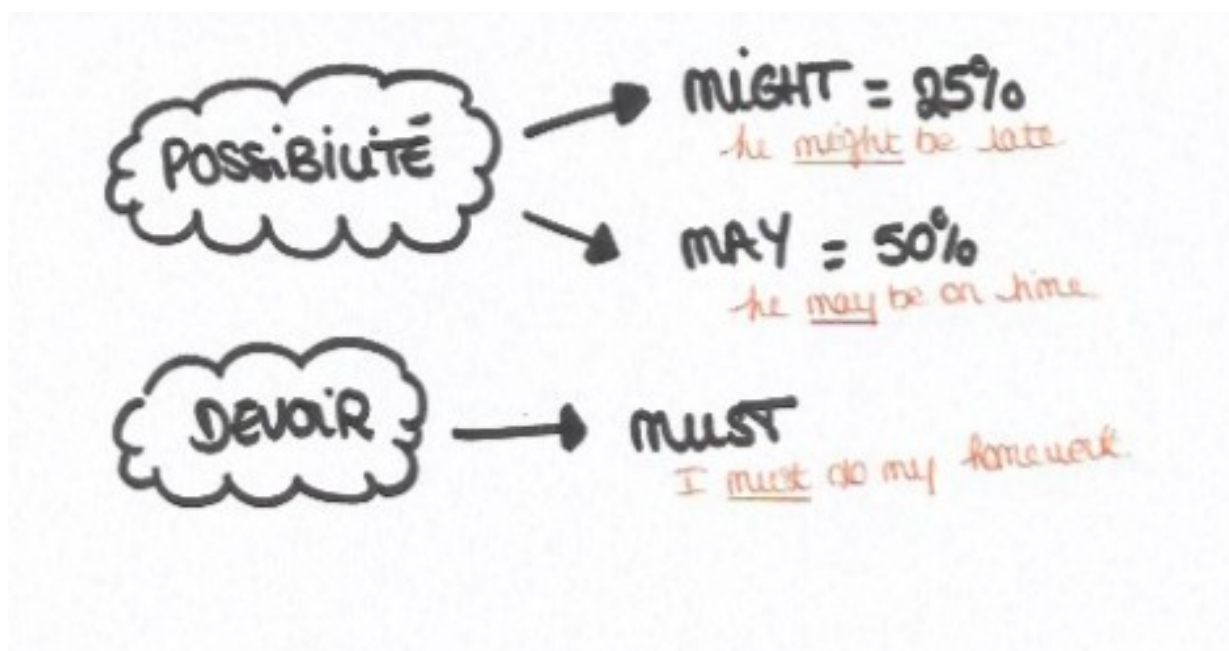 POSSIBILITÉ
MIGHT = 25%
he might be late
MAY = 50%
he may be on time
DEVOIR
MUST
I must do my homework.